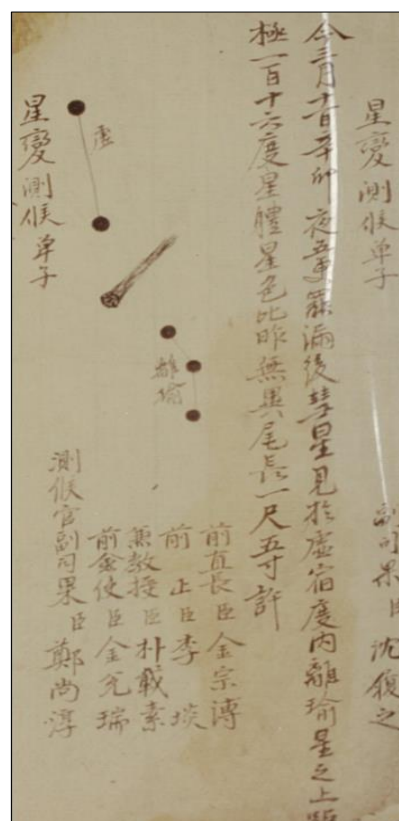 星變測候單子
副司果臣沈履之
今三月十一日辛卯夜五更罷漏後彗星見於虛宿度內離瑜星之上距
極一百十六度星體星色比昨無異尾長一尺五寸許
前直長臣金宗溥
前正臣李埮
兼教授臣朴載素
前僉使臣金兌瑞
測候官副司果臣鄭尚淳
虛
離瑜
星變測候單子